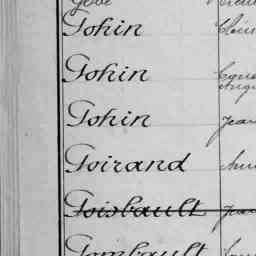 Gohin
Gohin
Gohin Jean
Goirand
Goisbault Jean
Gombault